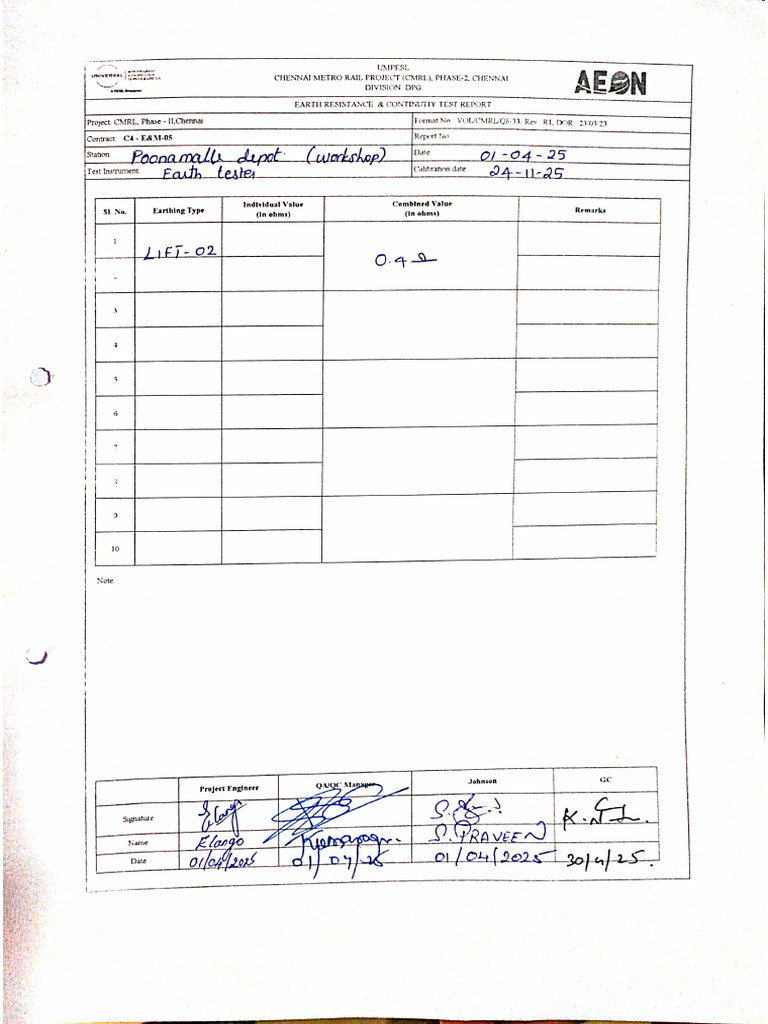 UNIVERSAL
UMPESL
CHENNAI METRO RAIL PROJECT (CMRL), PHASE-2, CHENNAI
DIVISION DPG
AEON
EARTH RESISTANCE & CONTINUTIY TEST REPORT
Project. CMRL, Phase - II,Chennai
Format No VOL/CMRL/QF/33, Rev R1, DOR 23/03/23
Contract: C4 - E&M-05
Report No
Station Poonamalle depot. (workshop)
Date 01-04-25
Test Instrument Earth tester
Calibration date 24-11-25
Sl. No. Earthing Type Individual Value (in ohms) Combined Value (in ohms) Remarks
1 LIFT-02 0.4 Ω
3
4
5
6
7
8
9
10
Note
Project Engineer QA/QC Manager Johnson GC
Signature Elango
Name Elango S. PRAVEEN
Date 01/04/2025 01/04/25 01/04/2025 30/4/25.